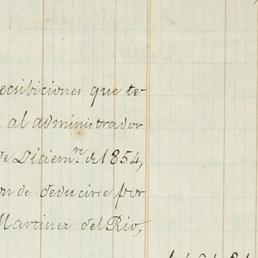 ecsibiciones que te-
al administrador
de Diciem.re de 1854,
on de deducirse por
Martinez del Rio,